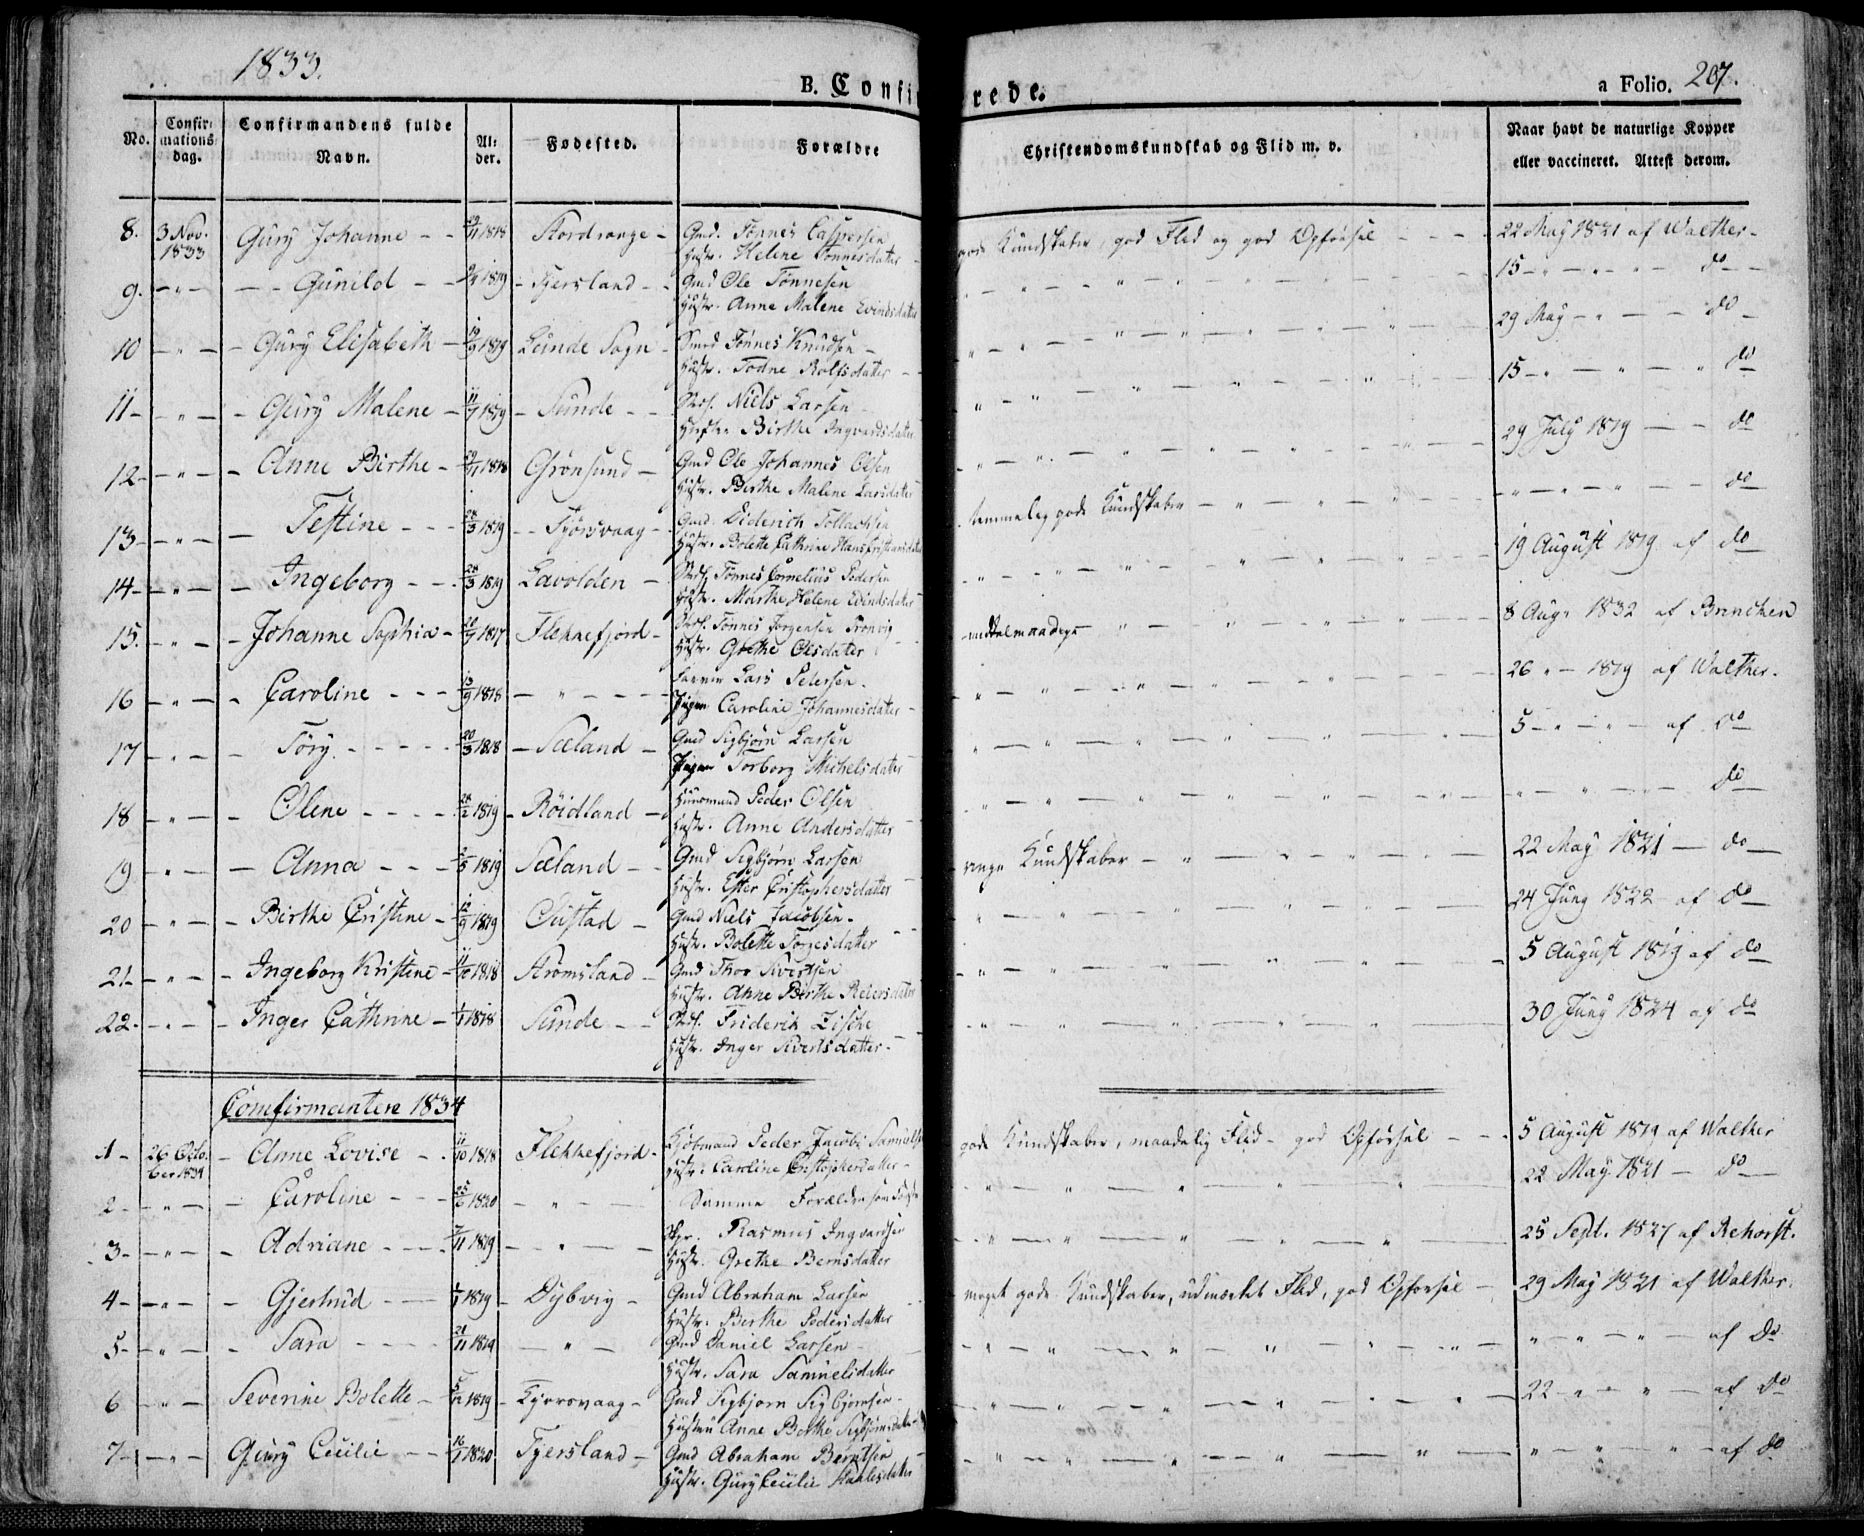 1833.
B. Confirmerede.
a Folio. 207.
No.
Confirmations dag.
Confirmandens fulde Navn.
Alder.
Fødested.
Forældre
Christendomskundskab og Flid m. v.
Naar havt de naturlige Kopper eller vaccineret. Attest derom.
8. 3 Nov. 1833 Gury Johanne - - 29/11 1818 Stordrange - Gmd. Tønnes Caspersen Hustr. Helene Tønnesdatter gode Kundskaber, god Flid og god Opførsel - - - 22 May 1821 af Walther -
9. - " - - - Gunild - - 1819 - Fjersland - - Gmd Ole Tønnesen Hustr. Anne Malene Evindsdatter 15 - " - " - do - -
10 - " - - Gury Elisabeth - 19/9 1819 Lunde Sogn - Tønnes Knudsen - Hustr. Todne Rolfsdatter - - 29 May - " - - do -
11 - " - - Gury Malene - 11/7 1819 - Sunde - - Niels Larsen - Hustru Birthe Ingvardsdatter 15 - " - " - " do
12 - " - - Anne Birthe - 29/11 1818 Grønsund - Gmd Ole Johannes Olsen Hustr. Birthe Malene Larsdatter 29 July 1819 - - do
13 - " - - Testine - - - 28/3 1819 - - Fjørsvaag - Gmd. Diderich Tollachsen Hustr. Bolette Cathrine Hanschristiansdatter temmelig gode Kundskaber - " - " - " - " - " - - do
14 - " - - Ingeborg - - - 28/3 1819 Lavolden - Tønnes Cornelius Pedersen Hustr. Marthe Helene Evindsdatter 19 August 1819 af do
15. - " - - Johanne Sophia - 1817 Flekkefjord - Tønnes Jørgensen Tronvig Hustr. Grethe Olsdater middelmaadige - " - " 8 Aug. 1832 af Brncken
16 - " - - Caroline - - - 13/9 1818 - " - - - Lars Petersen. Pigen Caroline Johannesdater - 26 " - 1819 af Walther.
17 - " - - Tøry. - - - - - 20/3 1818 - Sæland - Gmd Sigbjørn Larsen Pigen Torborg Michelsdater 5 - " - " - af do
18 - " - - Olene - - - - 28/2 1819 - Røidland - Huusmand Peder Olsen Hustr. Anne Andersdatter " - " - " - - do
19 - " - - Anna - - - 1819 Sæland - - Gmd Sigbjørn Larsen Hustr. Ester Cristophersdatter ringe Kundskaber - " - - " - " - 22 May 1821 - do -
20 - " - - Birthe Cristine - 12/9 1819 Oustad - Gmd Niels Jacobsen. Hustr. Bolette Torgesdatter 24 Juny 1822 af do -
21 - " - - Ingeborg Kristine - 1818 Strømsland - Gmd Thor Sivertsen Hustr. Anne Birthe Reiersdater 5 August 1819 af do
22. - " - - Inger Cathrine - 1/1 1818 Sunde - - Friderik Zische Hustr. Inger Sivertsdatter - 30 Juny 1824 af do
Comfirmantere 1834
1 - 26 October 1834 - Anne Lovise - - 11/10 1818 Flekkefjord - Kjøbmand Peder Jacobi Samuelsen Hustr. Caroline Cristophersdatter - gode Kundskaber, maadelig Flid - god Opførsel - - - 5 August 1819 af Walther
2 - - " - - Caroline - - - 25/6 1820 - " - - Samme Forældre som 22 May 1821 - do -
3 - - " - - Adriane - - - - 7/11 1819 - - " - - Rasmus Ingvardsen Hustr. Grethe Berntsdatter 25 Sept. 1827 af Rehorst.
4 - - " - - Gjertrud - - - 1/1 1819 - Dybvig - Gmd Abraham Larsen Hustr. Birthe Pedersdatter meget gode Kundskaber, udmærket Flid, god Opførsel - 29 May 1821 af Walther.
5 - - " - - Sara - - - - 21/11 1819 - " - Gmd Daniel Larsen - Hustr. Sara Samuelsdatter " - " - " - af Do
6 - " - Severine Bolette - 5/12 1819 - Kjørsvaag - Gmd Sigbjørn Sigbjørnsen - Hustru Anne Birthe Sigbjørnsdater - 22 - " - " - af Do
7 - - " - Gury Cecilie - - 16/1 1820. Fjersland - Gmd Abraham Berntsen Hustr. Gury Cecilie " - " - " - af Do